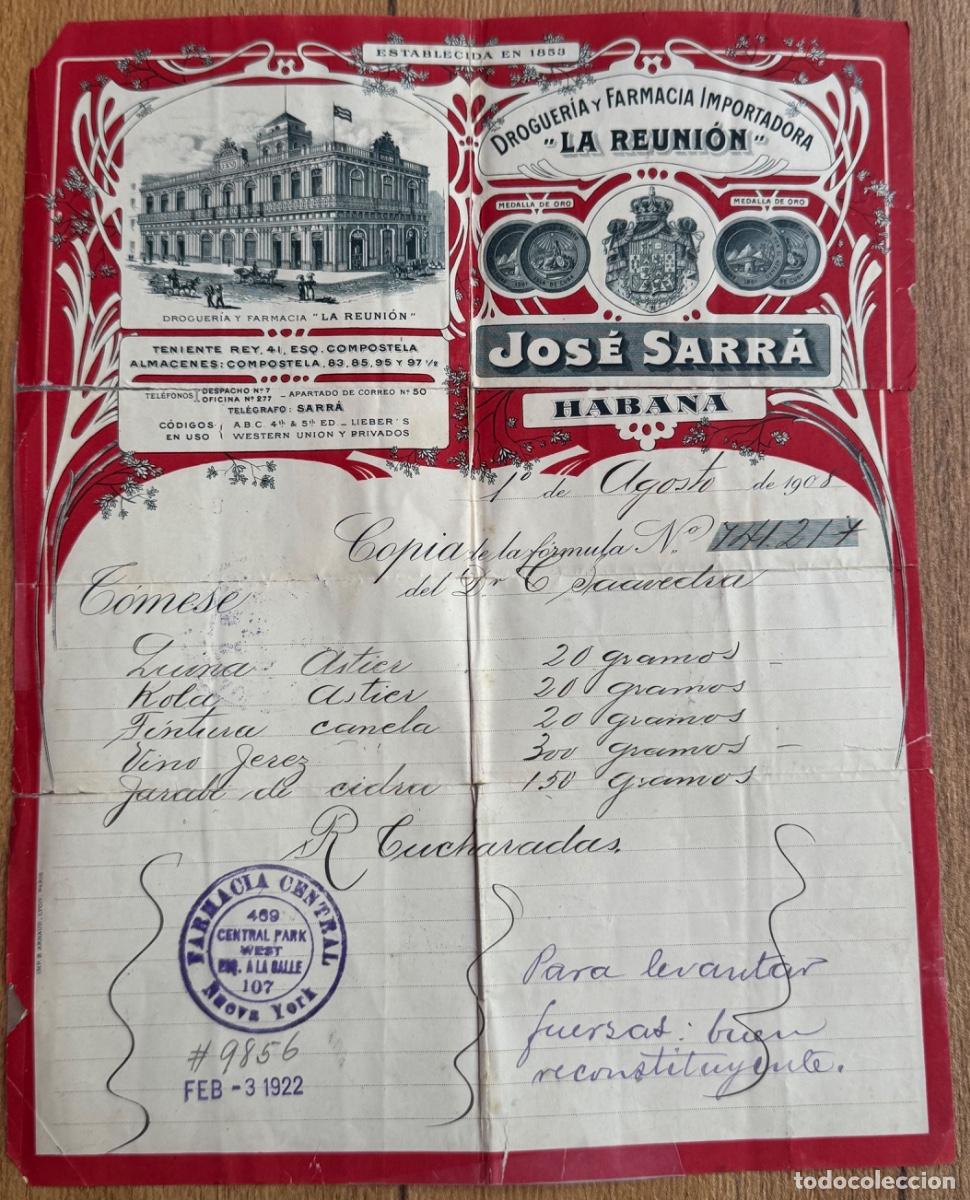 ESTABLECIDA EN 1853
DROGUERÍA Y FARMACIA IMPORTADORA
"LA REUNIÓN"
MEDALLA DE ORO
MEDALLA DE ORO
DROGUERIA Y FARMACIA "LA REUNIÓN"
TENIENTE REY, 41, ESQ. COMPOSTELA
ALMACENES: COMPOSTELA, 83, 85, 95 Y 97 1/2
JOSÉ SARRÁ
HABANA
TELÉFONOS DESPACHO Nº 7
OFICINA Nº 277 - APARTADO DE CORREO Nº 50
TELÉGRAFO: SARRÁ
CÓDIGOS EN USO A.B.C. 4th & 5th ED _ LIEBER'S
WESTERN UNION Y PRIVADOS
1º de Agosto de 1908
Copia de la fórmula Nº 741.217
del Dr C Saavedra
Tómese
Astier 20 gramos
Kola Astier 20 gramos
Tintura canela 20 gramos
Vino Jerez 300 gramos
Jarabe de cidra 150 gramos
R Cucharadas.
FARMACIA CENTRAL
469
CENTRAL PARK
WEST
ESQ. A LA CALLE
107
Nueva York
#9856
FEB -3 1922
Para levantar
fuersas: buen
reconstituyente.
todocoleccion